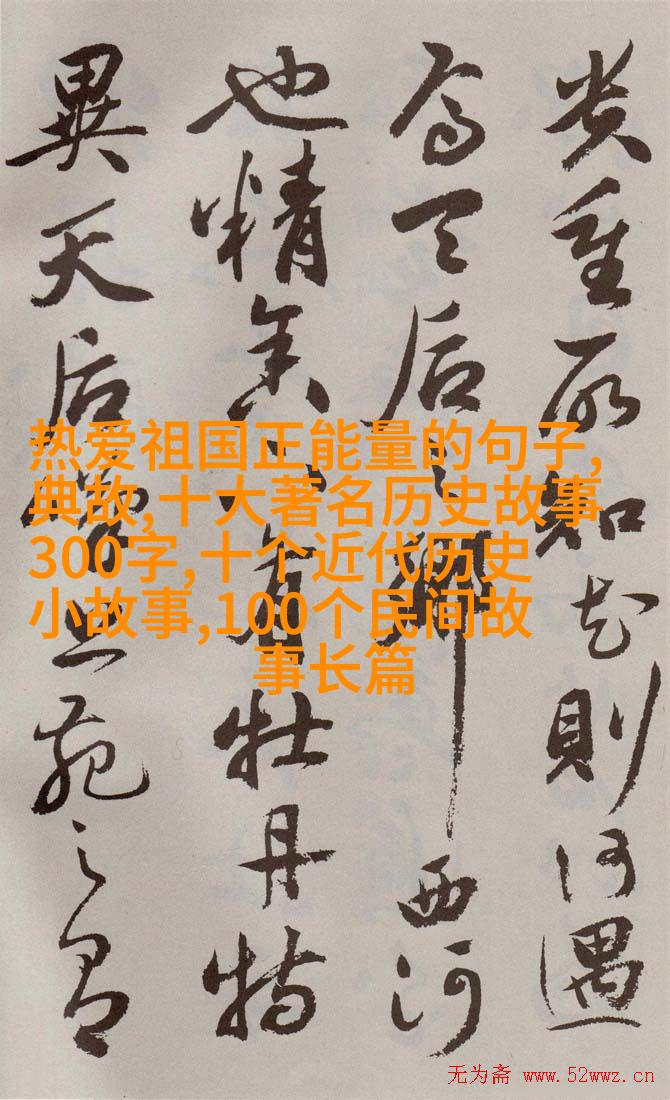 貴重所知花則何遇
焉天后之鄉西河
也精舍下有牡丹特
異天后嘆上苑之有
热爱祖国正能量的句子,
典故,十大著名历史故事
300字,十个近代历史
小故事,100个民间故
事长篇
无为斋 www.52wwz.cn